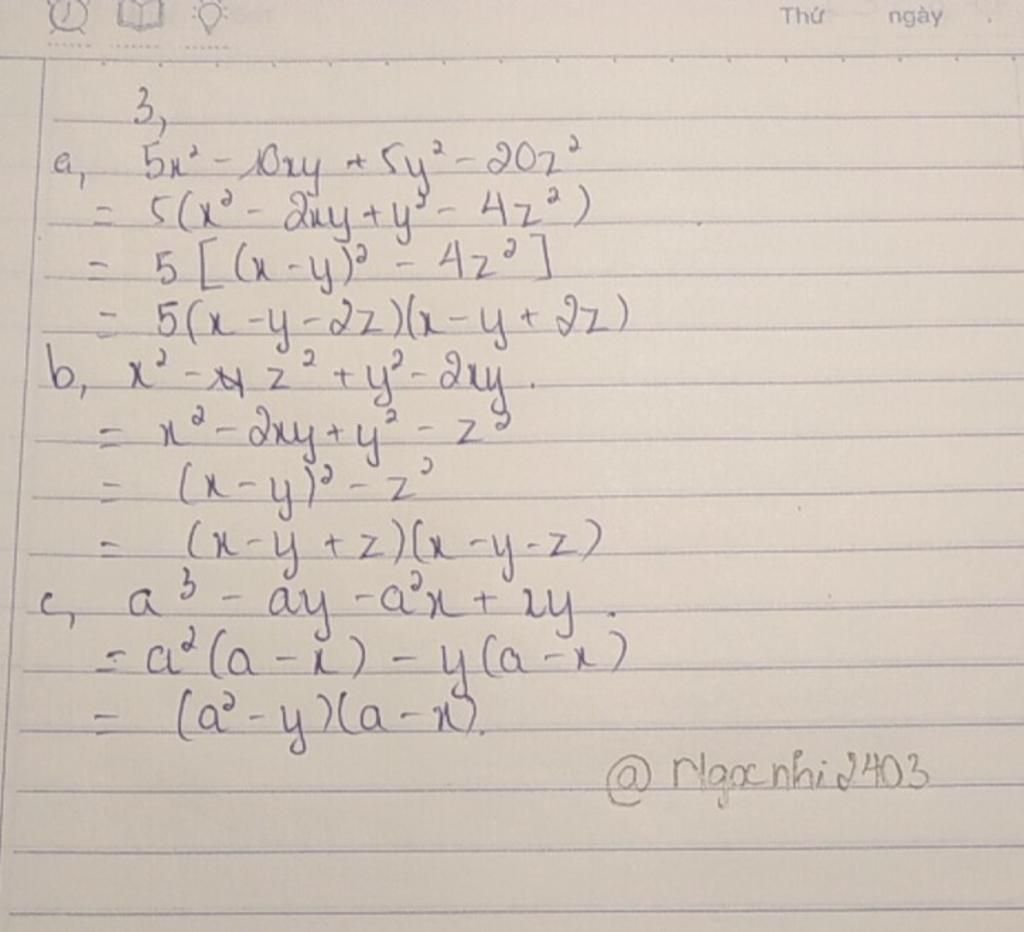 Thứ ngày
3,
a, 5x² - 10xy + 5y² - 20z²
= 5(x² - 2xy + y² - 4z²)
= 5[(x - y)² - 4z²]
= 5(x - y - 2z)(x - y + 2z)
b, x² - z² + y² - 2xy.
= x² - 2xy + y² - z²
= (x - y)² - z²
= (x - y + z)(x - y - z)
c, a³ - ay - a²x + xy.
= a²(a - x) - y(a - x)
= (a² - y)(a - x).
@Ngocnhi2403